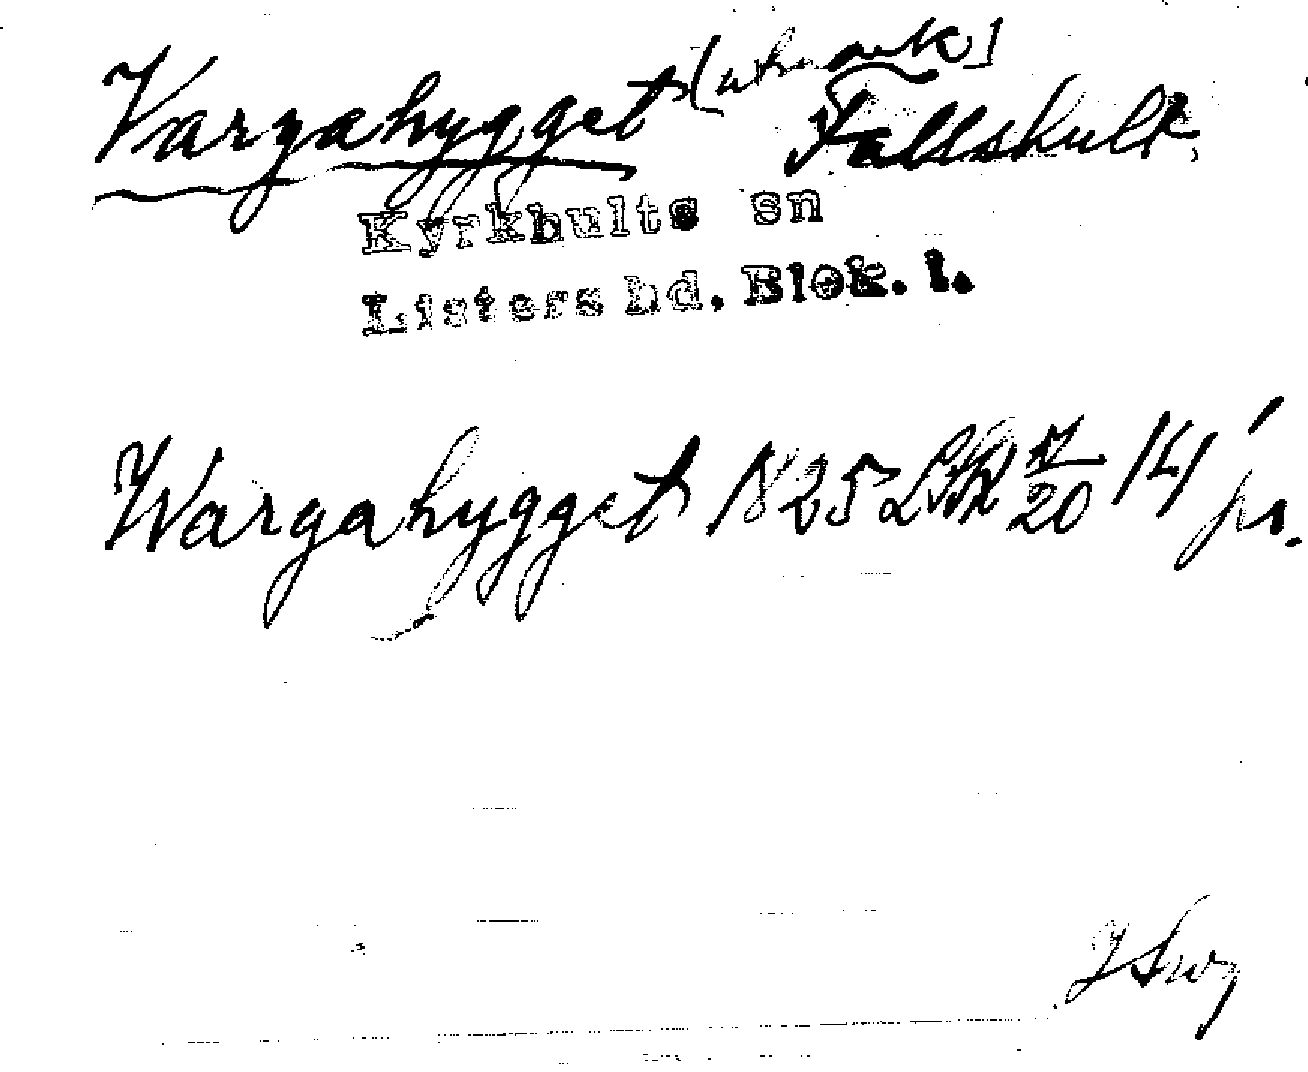 Vargahygget [utmark]
Kyrkhults sn
Listers hd. Blek. l.
Wargahygget 1825 LSA 17/20 14